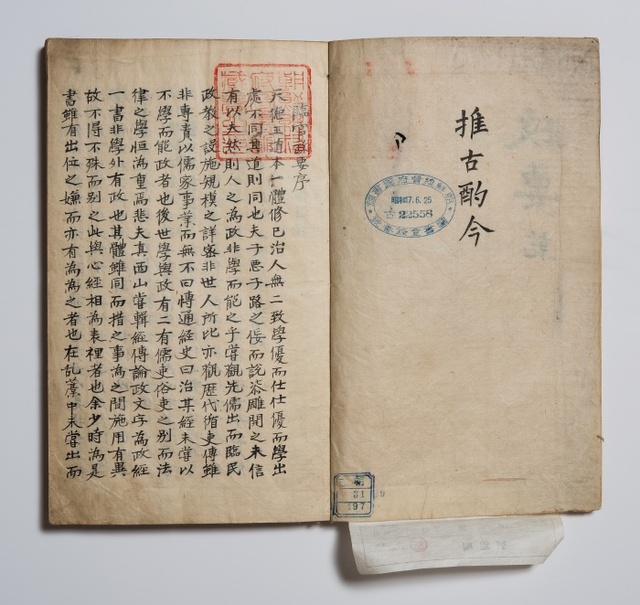 推古酌今
朝鮮總督府圖書館
昭和17.6.25
古22558
圖書登錄番號
朝鮮總督府圖書館藏書之印
臨官政要序
天德王道本一體修已治人無二致學優而仕仕優而學出
處不同其道則同也夫子惡子路之佞而說漆雕開之未信
有以夫然則人之為政非學而能之乎嘗觀先儒出而臨民
政教之設施規模之詳密非世人所比亦觀歷代循吏傳雖
非專責以儒家事業而無不曰博通經史曰治某經未嘗以
不學而能政者也後世學與政有二有儒吏俗吏之別而法
律之學恒為重焉悲夫真西山嘗輯經傳論政文字為政經
一書非學外有政也其體雖同而措之事為之間施用有異
故不得不殊而別之此與心經相為表裡者也余少時為是
書雖有出位之嫌而亦有為為之者也在乱藁中未嘗出而
31
197